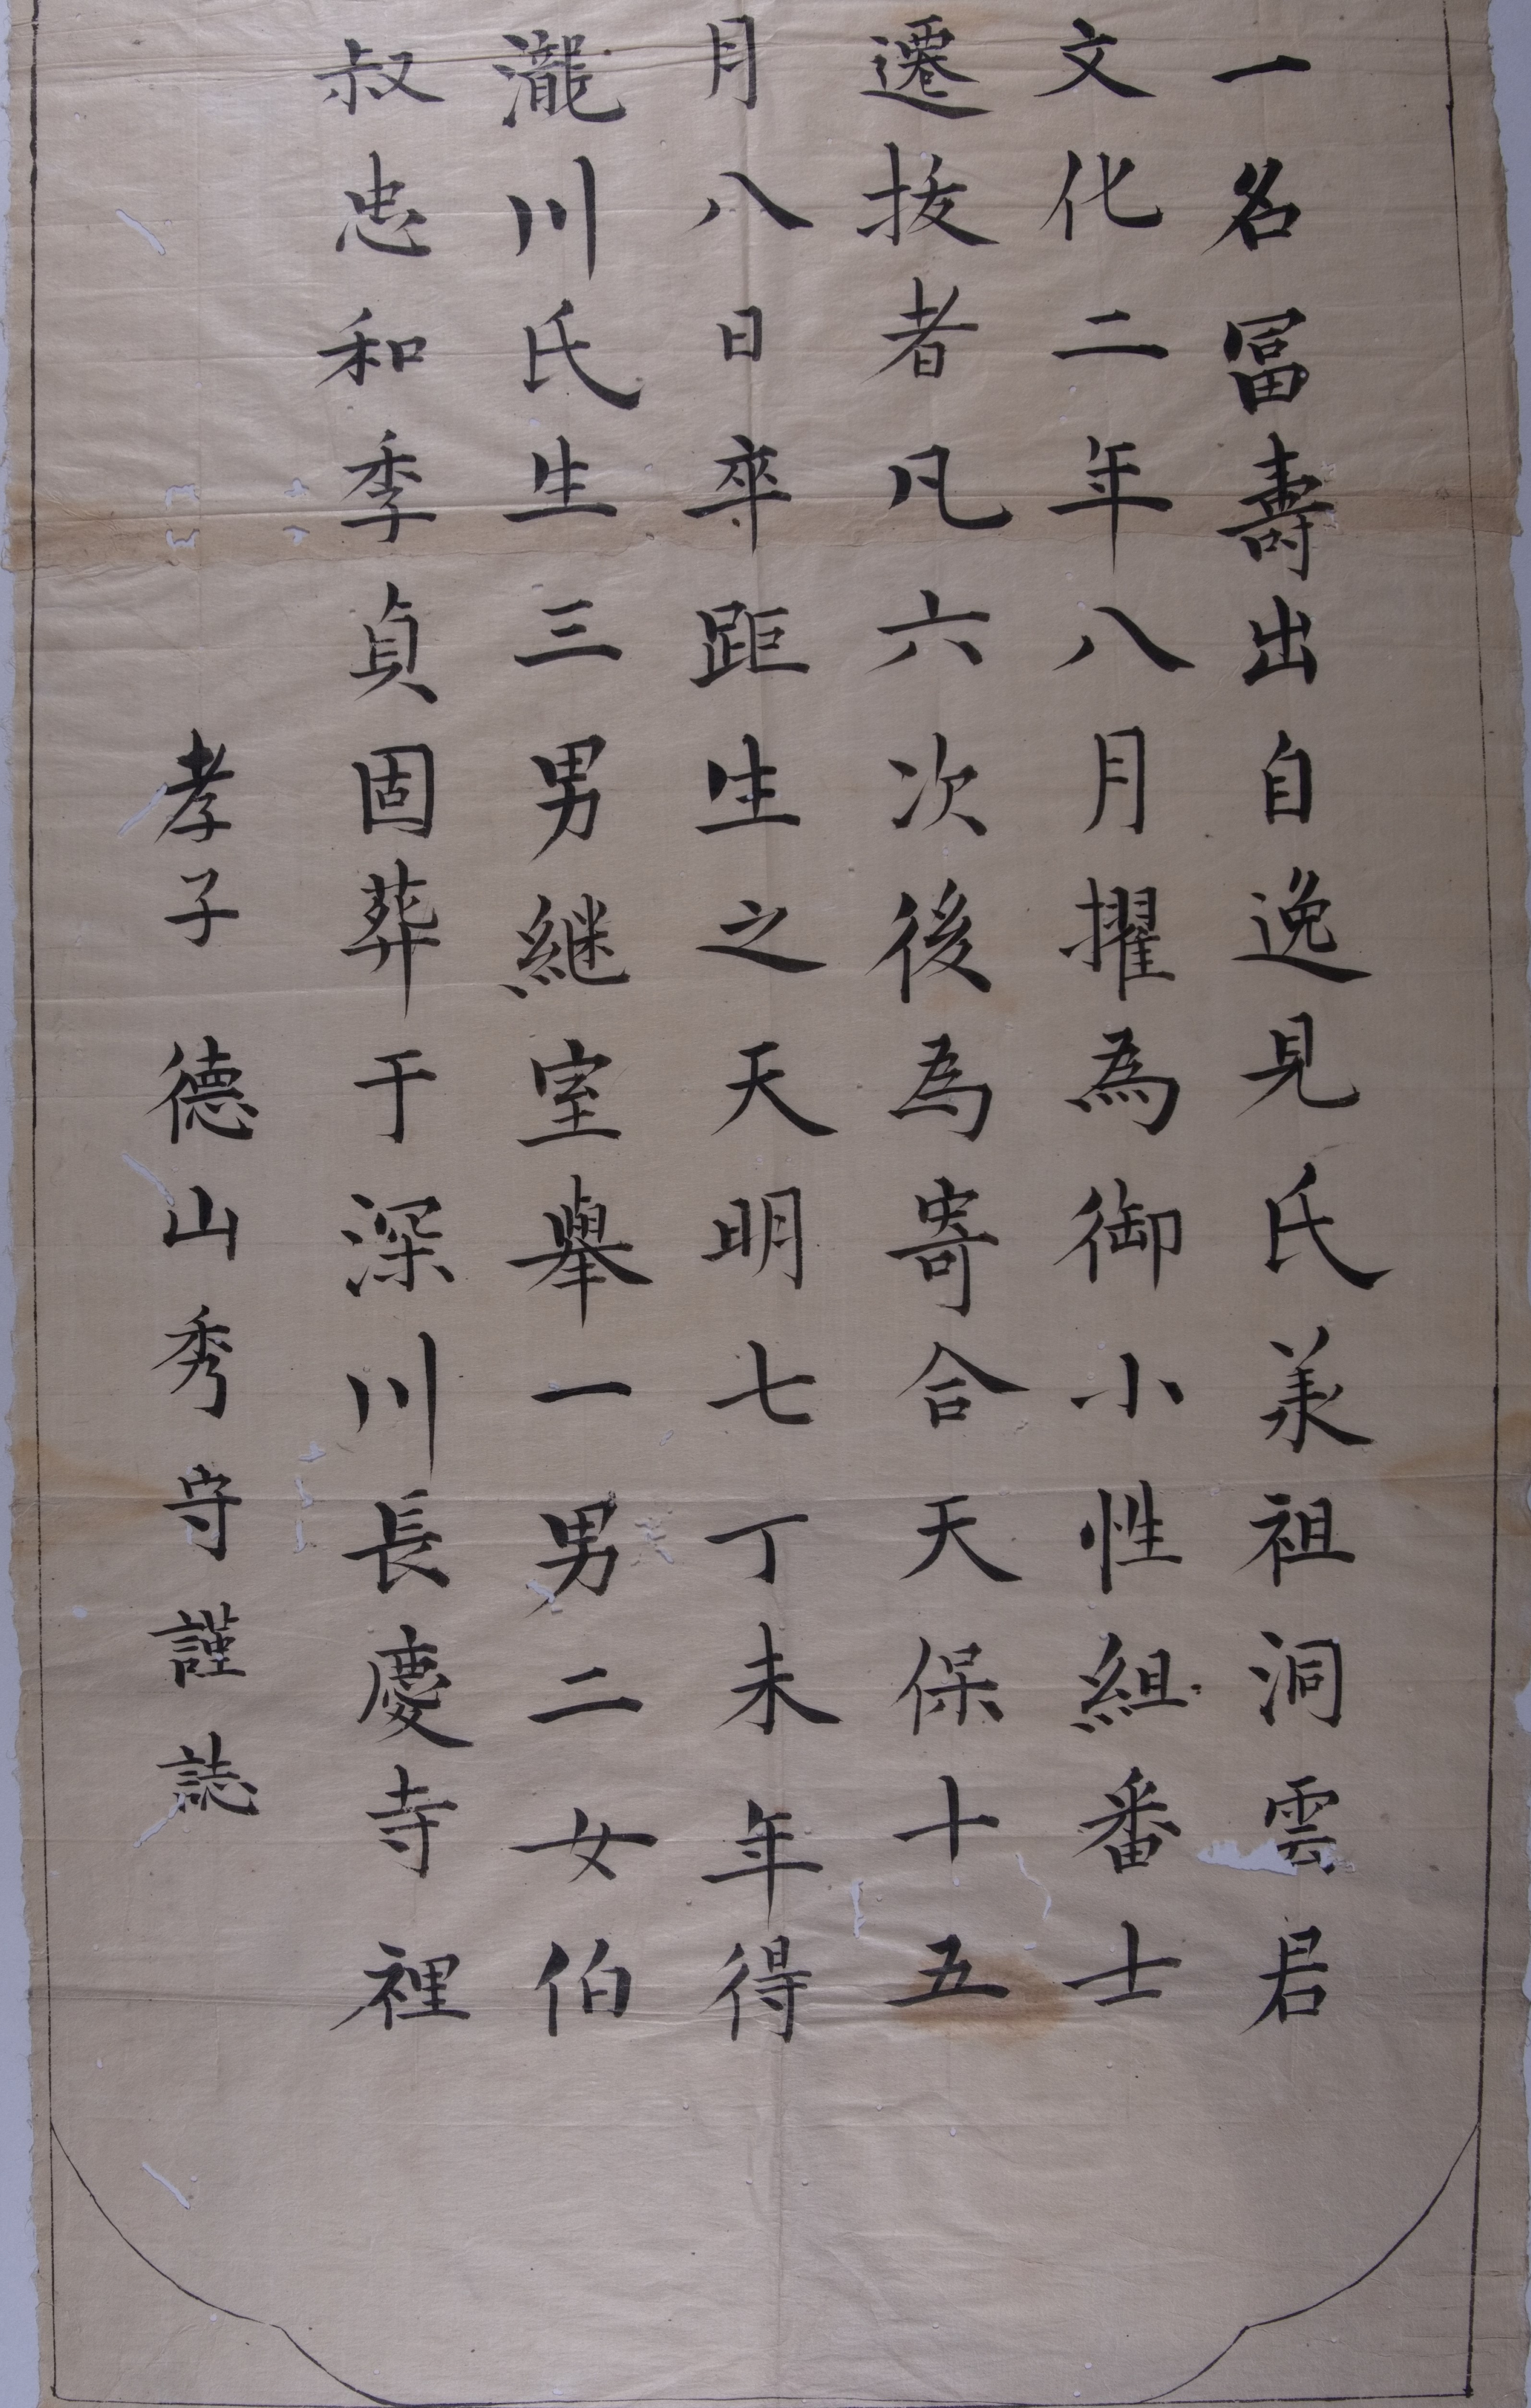 一名冨壽出自逸見氏羕祖洞雲君
文化二年八月擢為御小性組番士
遷抜者凡六次後為寄合天保十五
月八日卒距生之天明七丁未年得
瀧川氏生三男継室擧一男二女伯
叔忠和季貞固葬于深川長慶寺裡
孝子德山秀守謹誌